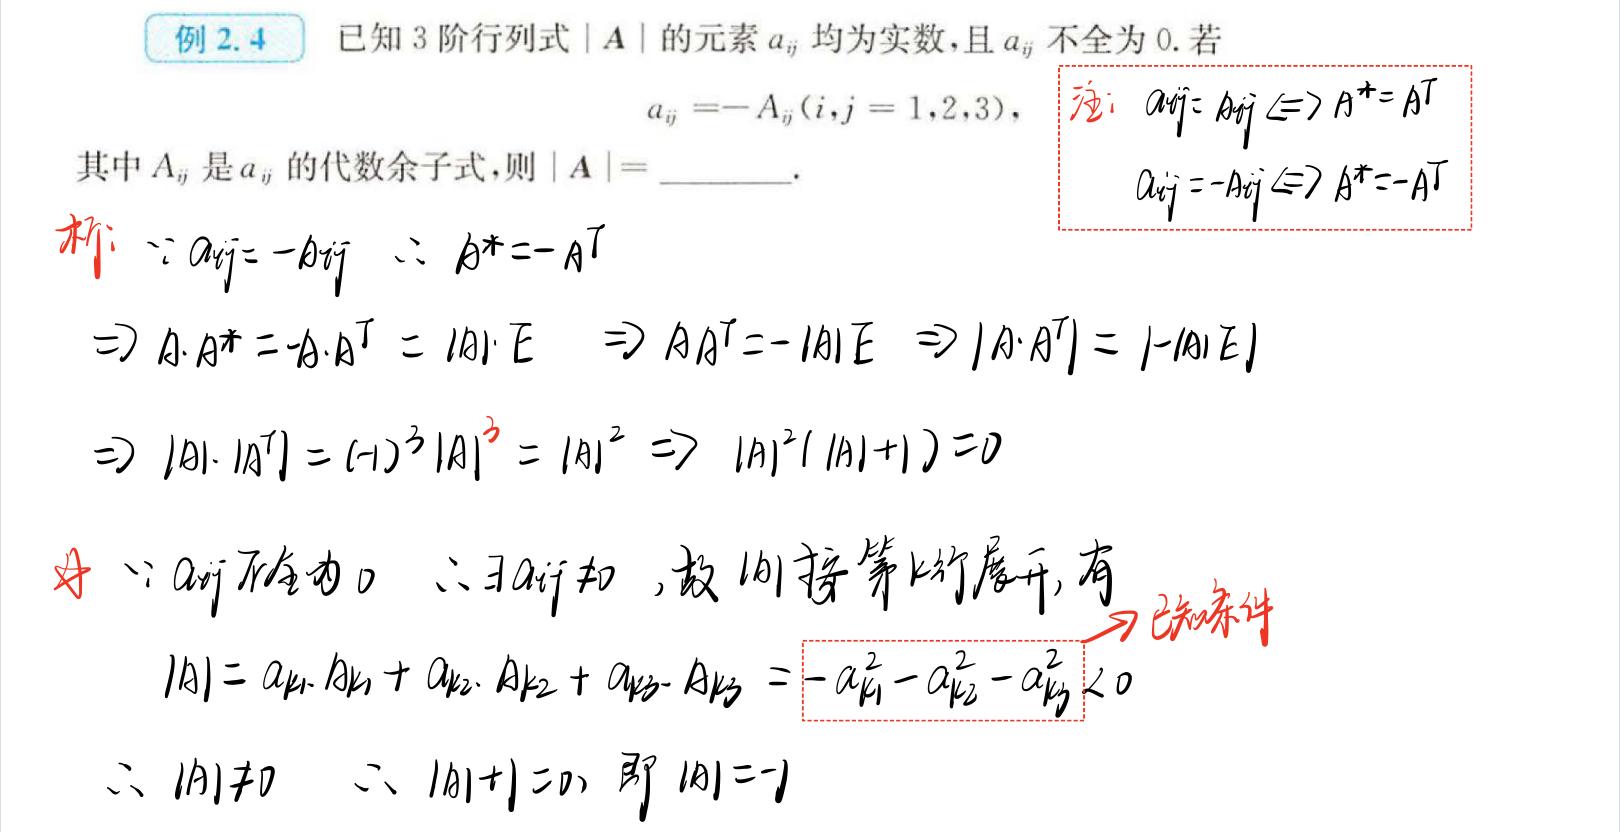 例 2.4 已知 3 阶行列式 | A | 的元素 a_{ij} 均为实数,且 a_{ij} 不全为 0. 若
a_{ij} =- A_{ij} (i,j = 1,2,3),
其中 A_{ij} 是 a_{ij} 的代数余子式,则 | A | = ________.
注: a_{ij} = A_{ij} <=> A* = A^T
a_{ij} = -A_{ij} <=> A* = -A^T
析: ∵ a_{ij} = -A_{ij} ∴ A* = -A^T
=> A·A* = -A·A^T = |A|·E => AA^T = -|A|E => |A·A^T| = |-|A|E|
=> |A|·|A^T| = (-1)^3|A|^3 = |A|^2 => |A|^2(|A|+1) = 0
又 ∵ a_{ij} 不全为 0 ∴ ∃ a_{ij} ≠ 0 , 故 |A| 按第 k 行展开, 有
→ 已知条件
|A| = a_{k1}·A_{k1} + a_{k2}·A_{k2} + a_{k3}·A_{k3} = -a_{k1}^2 - a_{k2}^2 - a_{k3}^2 < 0
∴ |A| ≠ 0 ∴ |A|+1 = 0, 即 |A| = -1